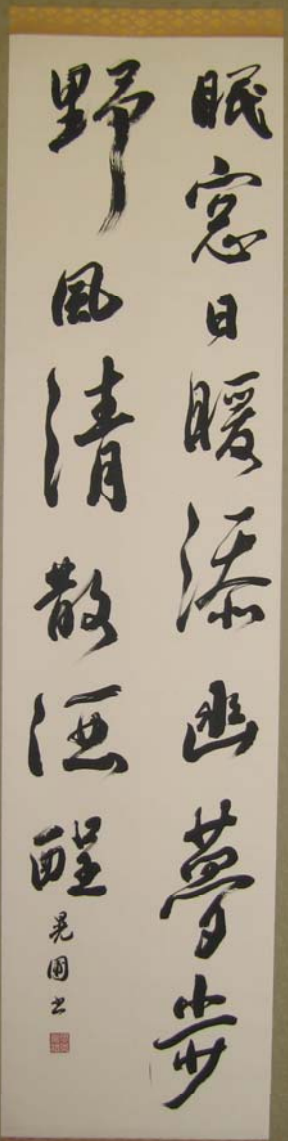 眠窓日暖添幽夢歩
野風清散酒醒
晃圃書